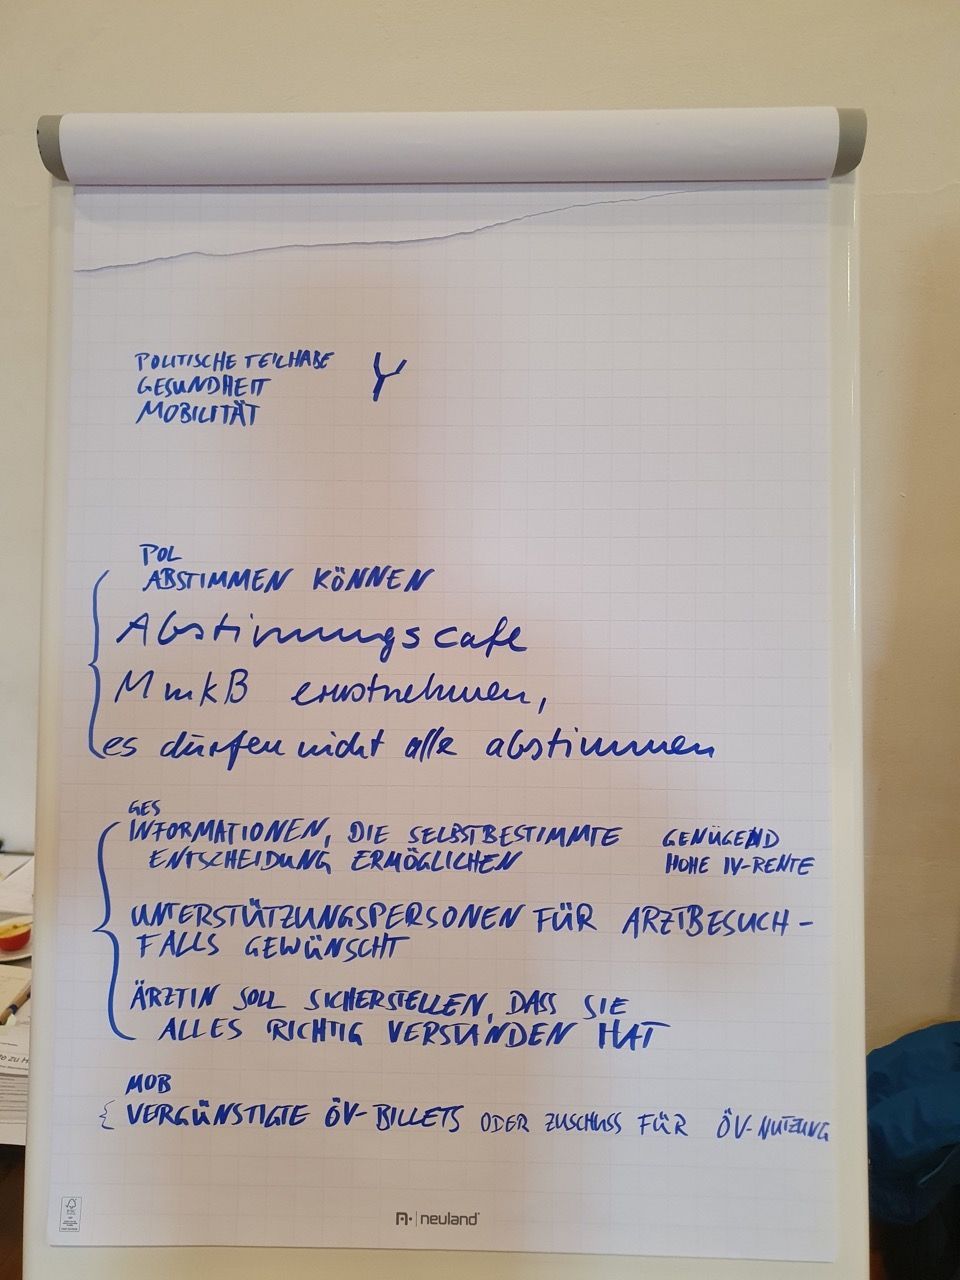 POLITISCHE TEILHABE
GESUNDHEIT
MOBILITÄT
POL
ABSTIMMEN KÖNNEN
Abstimmungscafe
MmkB ernstnehmen,
es dürfen nicht alle abstimmen
GES
INFORMATIONEN, DIE SELBSTBESTIMMTE
ENTSCHEIDUNG ERMÖGLICHEN
GENÜGEND
HOHE IV-RENTE
UNTERSTÜTZUNGSPERSONEN FÜR ARZTBESUCH -
FALLS GEWÜNSCHT
ÄRZTIN SOLL SICHERSTELLEN, DASS SIE
ALLES RICHTIG VERSTANDEN HAT
MOB
VERGÜNSTIGTE ÖV-BILLETS ODER ZUSCHUSS FÜR ÖV-NUTZUNG
neuland